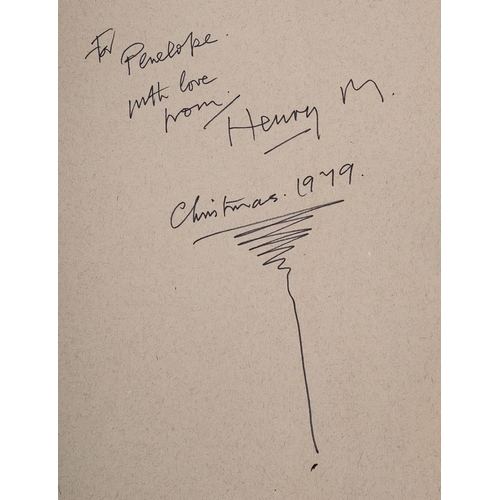 For Penelope.
with love
from Henry M.
Christmas. 1979.